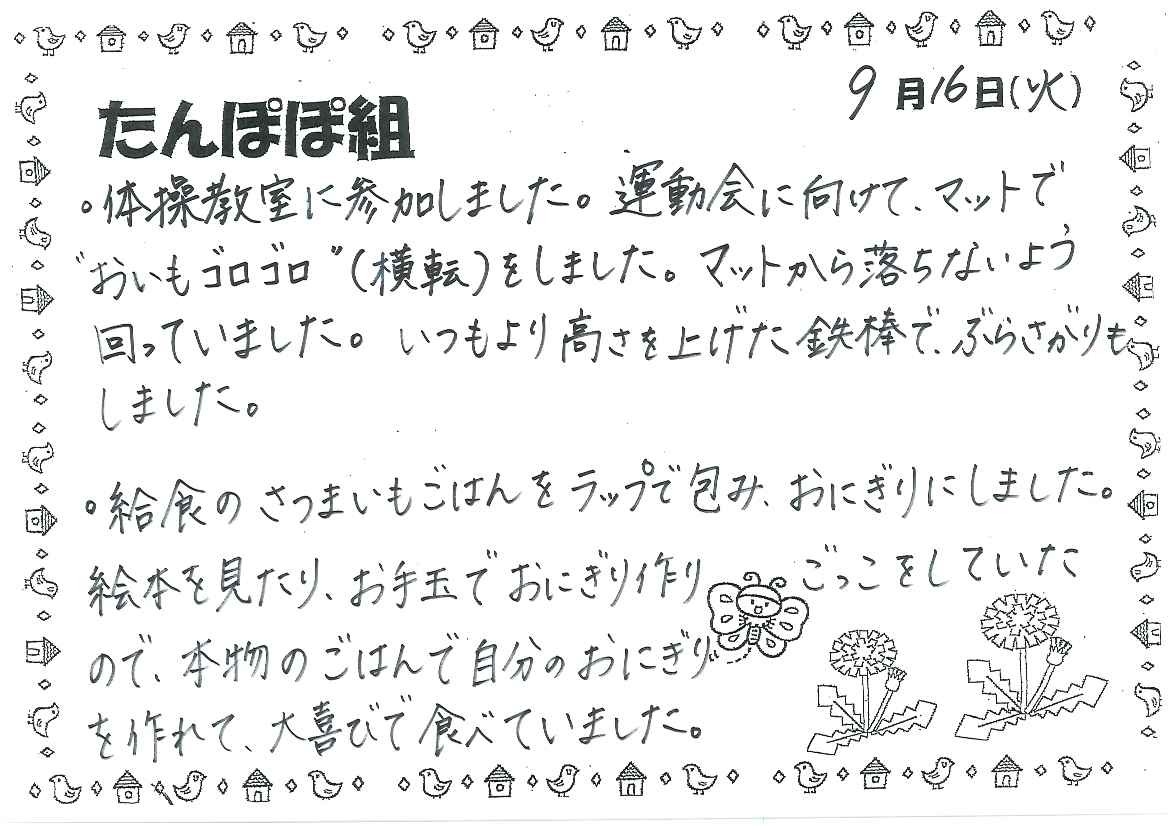 9月16日(火)
たんぽぽ組
。体操教室に参加しました。運動会に向けて、マットで
"おいもゴロゴロ"(横転)をしました。マットから落ちないよう
回っていました。いつもより高さを上げた鉄棒で、ぶらさがりも
しました。
。給食のさつまいもごはんをラップで包み、おにぎりにしました。
絵本を見たり、お手玉でおにぎり作りごっこをしていた
ので、本物のごはんで自分のおにぎり
を作れて、大喜びで食べていました。